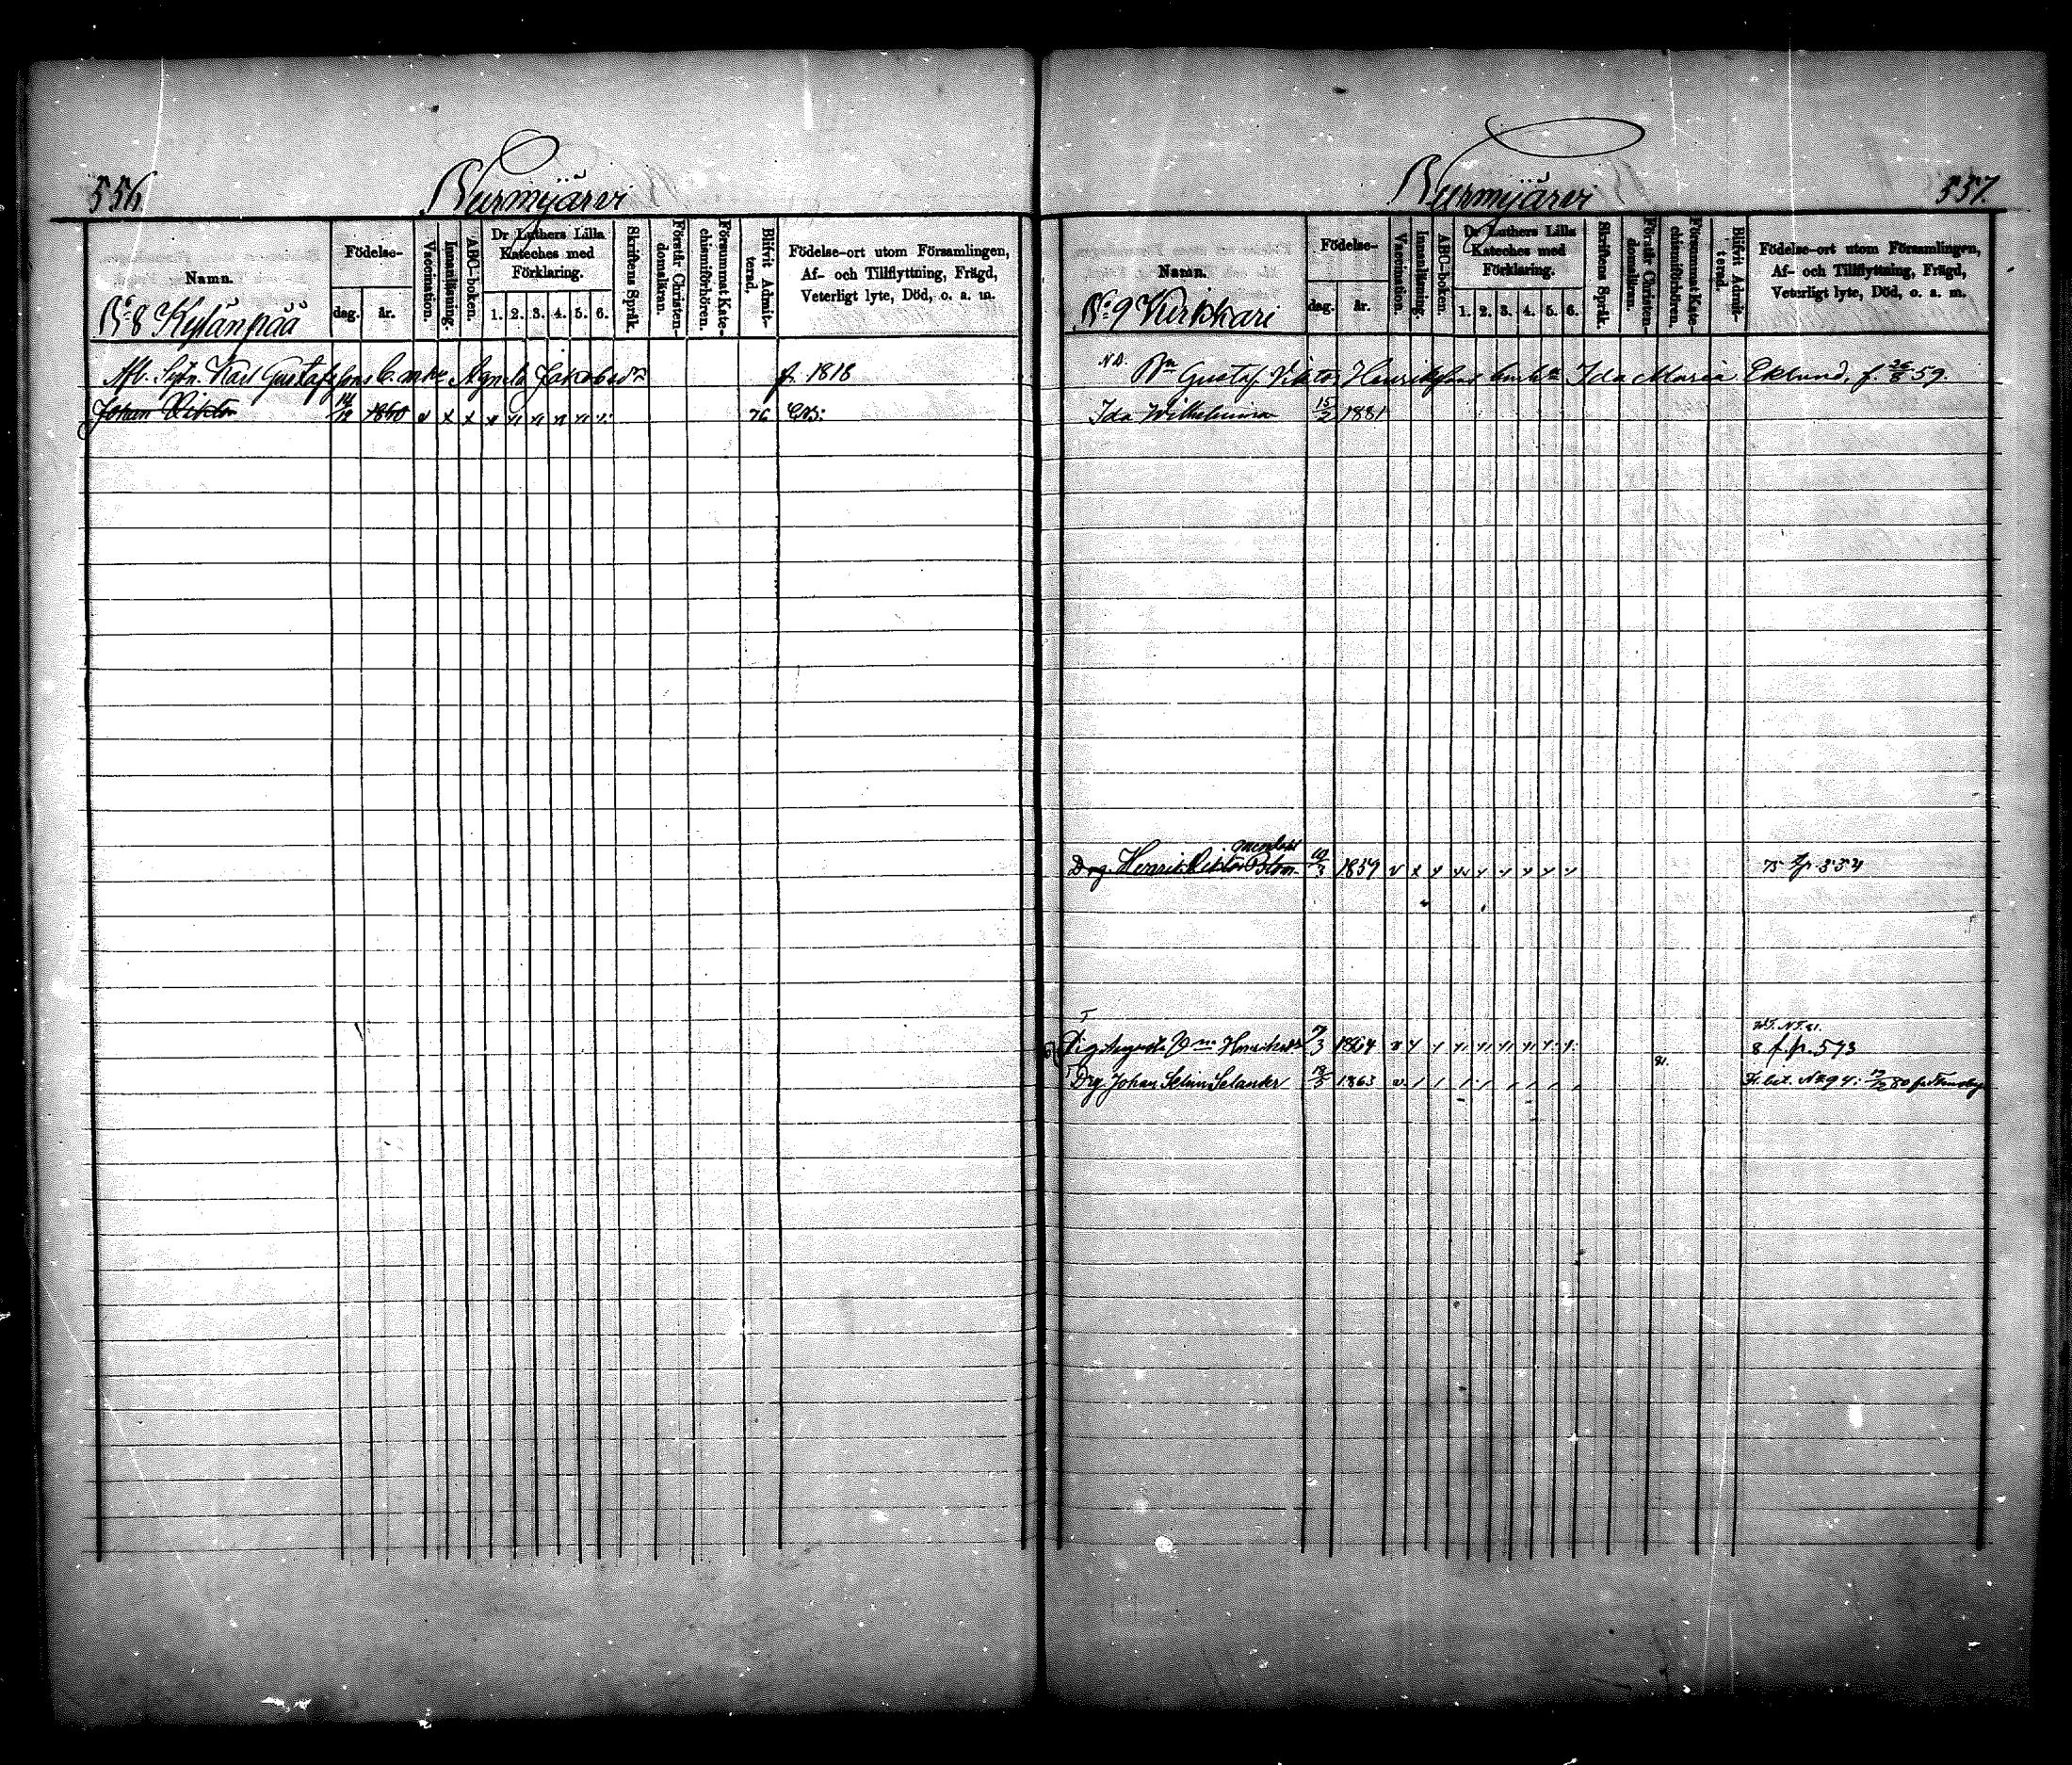 556.
Nurmijärvi
Namn.
Födelse-
dag.
år.
Vaccination.
Innanläsning.
ABC-boken.
Dr Luthers Lilla
Kateches med
Förklaring.
1. 2. 3. 4. 5. 6.
Skriftens Språk.
Förstår Christen-
domsläran.
Försummat Kate-
chismiförhören.
Blifvit Admit-
terad,
Födelse-ort utom Församlingen,
Af- och Tillflyttning, Frägd,
Veterligt lyte, Död, o. a. m.
N:o 8 Kylänpää
Afl. Karl Gustafssons Agneta Jakobsd:r f. 1818
Johan Viktor 14/12 1860 v x x 76
557.
Nurmijärvi
Namn.
Födelse-
dag.
år.
Vaccination.
Innanläsning.
ABC-boken.
Dr Luthers Lilla
Kateches med
Förklaring.
1. 2. 3. 4. 5. 6.
Skriftens Språk.
Förstår Christen-
domsläran.
Försummat Kate-
chismiförhören.
Blifvit Admit-
terad.
Födelse-ort utom Församlingen,
Af- och Tillflyttning, Frägd,
Veterligt lyte, Död, o. a. m.
N:o 9 Kirkkari
Gustaf Viktor Henrikssons Ida Maria Eklund, f. 26/8 59.
Ida Wilhelmina 15/2 1881
Drg. Henrik Viktor 10/3 1859 v x 75 fr 554
Augusta Henriksd:r 7/3 1864 8 f.p. 573
Drg. Johan Selim Selander 13/5 1863 v 81.